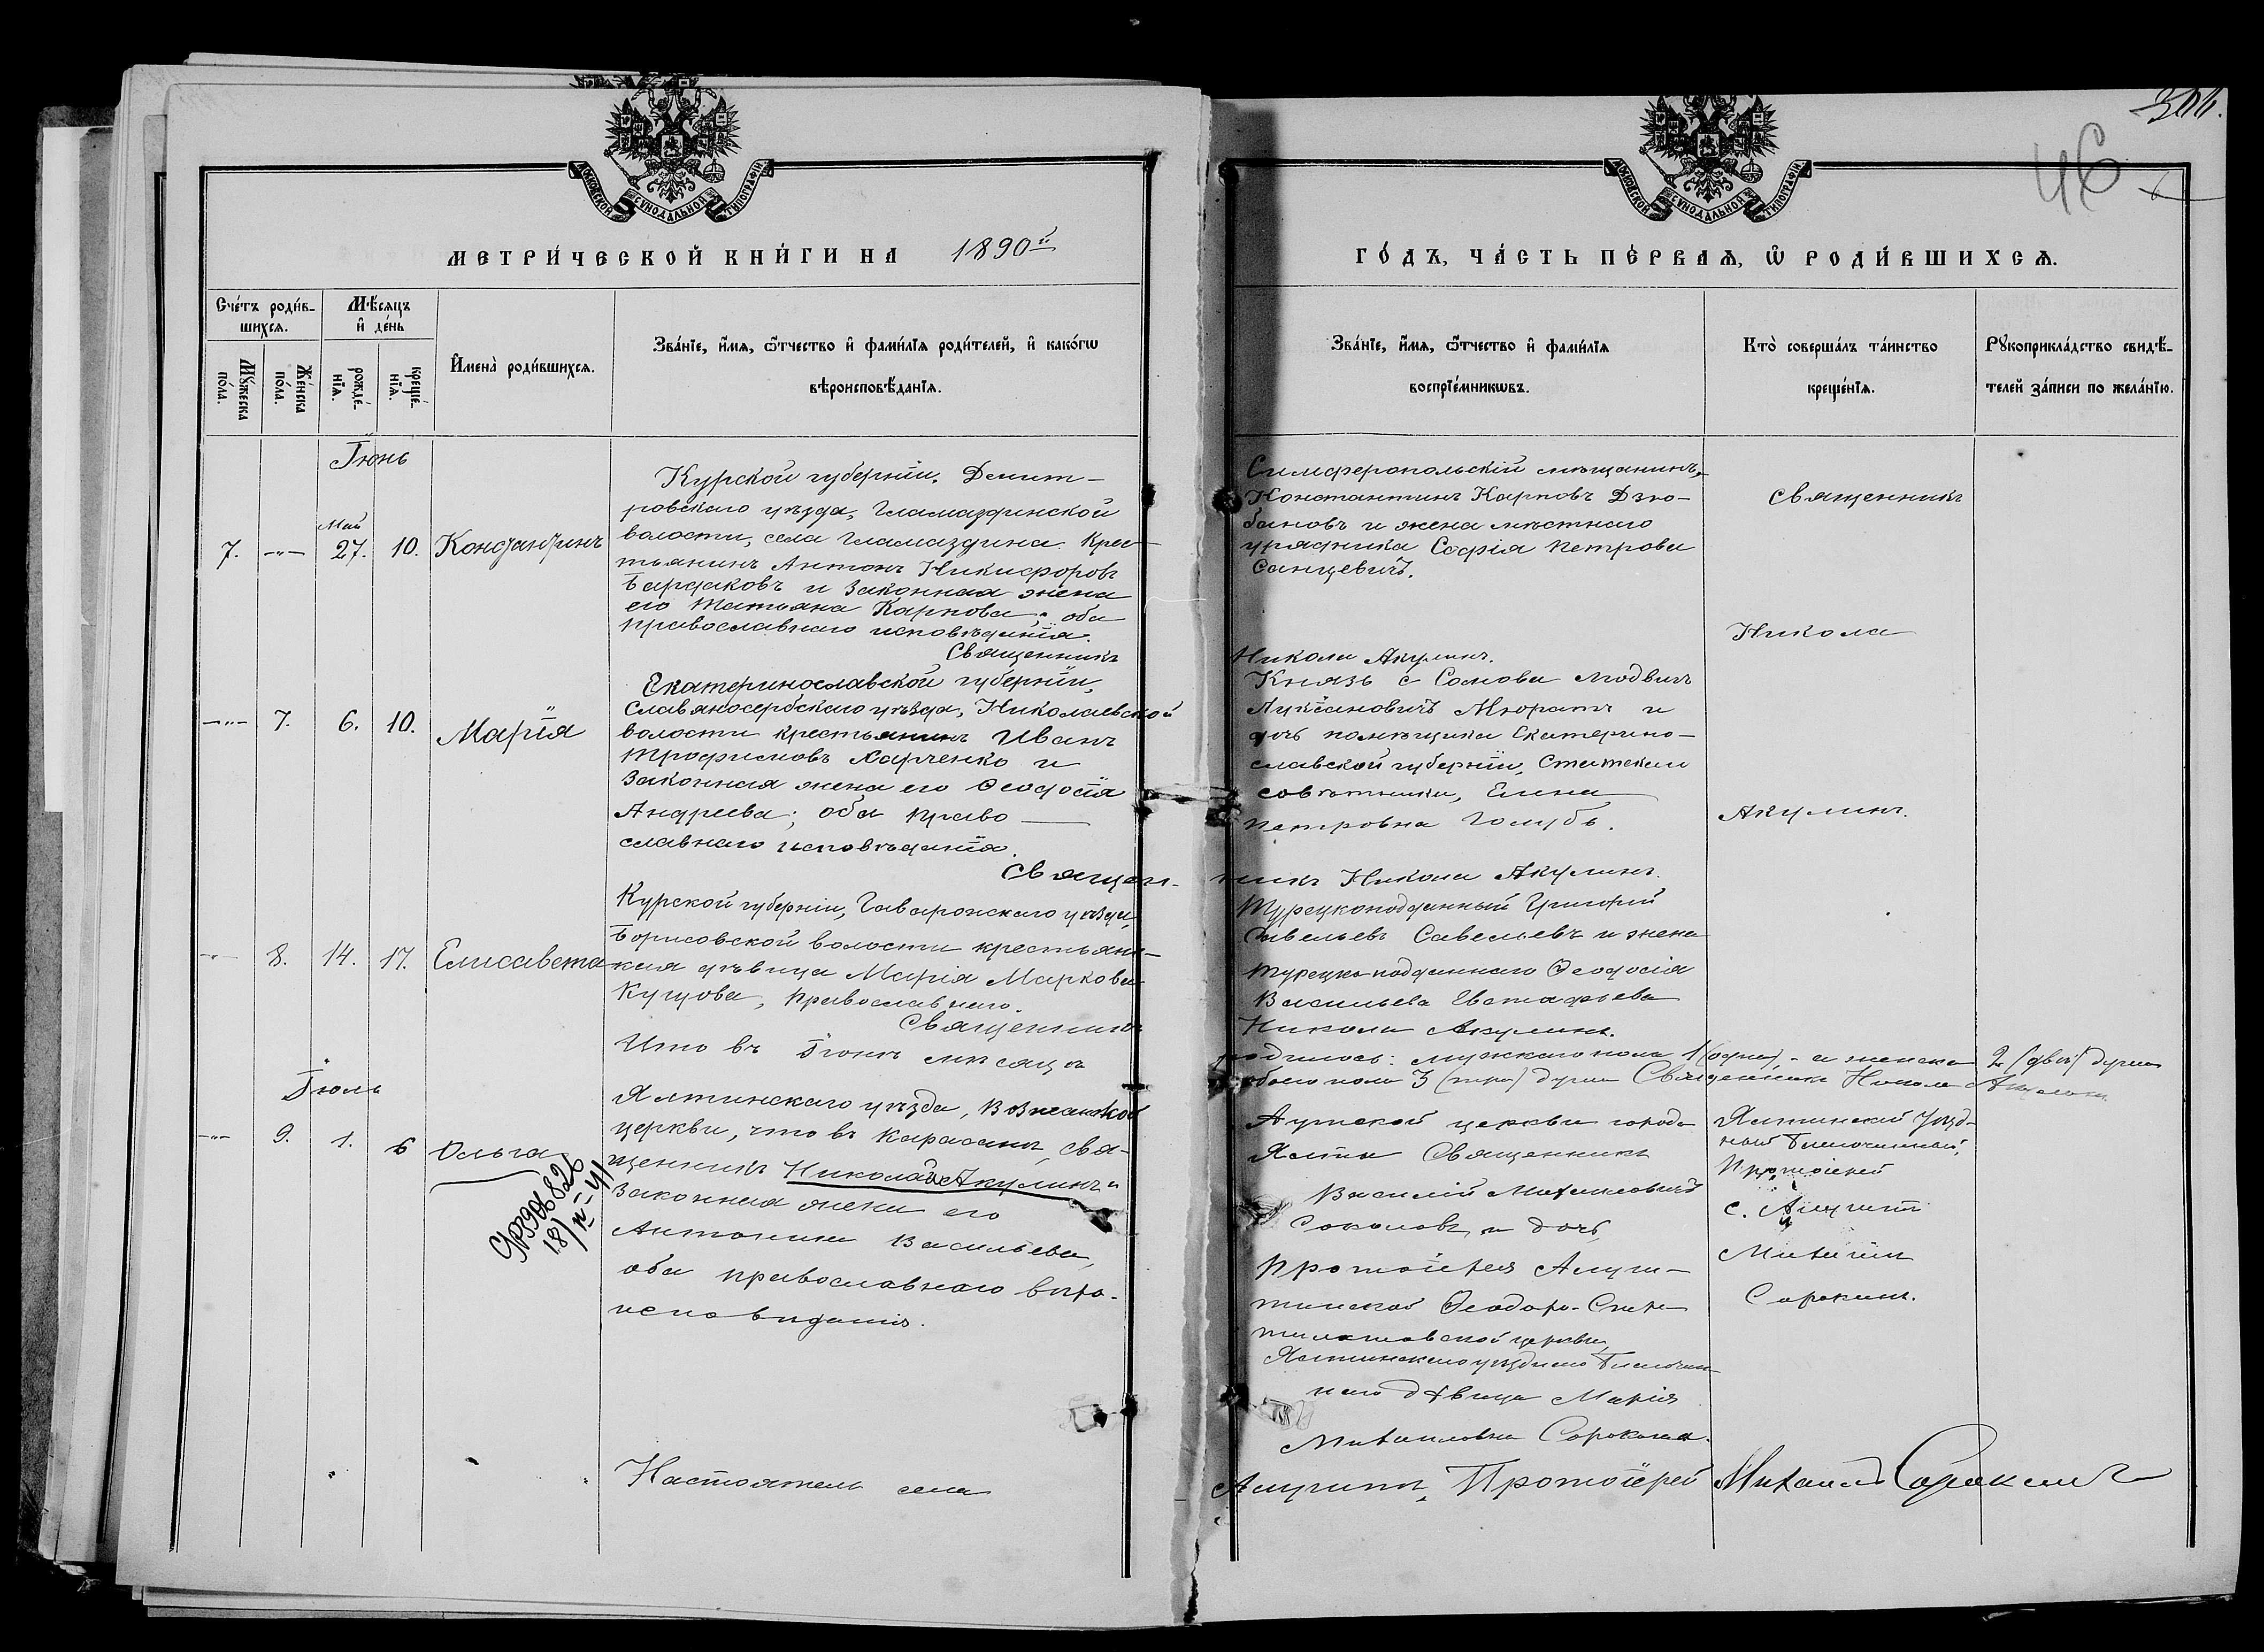 344.
46
МОСКОВСКОЙ СѴНОДАЛЬНОЙ ТѴПОГРАФІИ
МОСКОВСКОЙ СѴНОДАЛЬНОЙ ТѴПОГРАФІИ
МЕТРИ́ЧЕСКОЙ КНИ́ГИ НА 1890й
ГО́ДЪ, ЧА́СТЬ ПЕ́РВАѦ, Ѽ РОДИ́ВШИХСѦ.
Сче́тъ роди́в-
шихсѧ.
Мѣ́сяцъ
и҆ де́нь
Мꙋ́жеска
по́ла.
Же́нска
по́ла.
рожде́-
нїѧ.
креще́-
нїѧ.
И҆мена̀ роди́вшихсѧ.
Зва́нїе, и҆́мѧ, ѻ҆́тчество и҆ фами́лїѧ роди́телей, и҆ како́гѡ
вѣроисповѣ́данїѧ.
Зва́нїе, и҆́мѧ, ѻ҆́тчество и҆ фами́лїѧ
воспрїе́мникѡвъ.
Кто̀ соверша́лъ та́инство
креще́нїѧ.
Рꙋкоприкла́дство свидѣ́-
телей за́писи по жела́нїю.
Іюнь
Май
7. -„- 27. 10. Константинъ
Курской губерніи, Дмит-
ровскаго уѣзда, Гламаздинской
волости, села Гламаздина. Крес-
тьянинъ Антонъ Никифоровъ
Бардаковъ и законная жена
его Татьяна Карпова; оба
православнаго исповѣданія.
Священникъ
Симферопольскій мѣщанинъ,
Константинъ Карповъ Дзю-
бановъ и жена мѣстнаго
урядника Софія Петрова
Санцевичъ.
Николай Акулинъ.
Священникъ
Никола
Акулинъ.
-„- 7. 6. 10. Марія
Екатеринославской губерніи,
Славяносербскаго уѣзда, Николаевской
волости крестьянинъ Иванъ
Трофимовъ Харченко и
законная жена его Ѳеодосія
Андреева; оба право-
славнаго исповѣданія.
Священ-
Князь с Сомова Людвигъ
Мюратъ и
дочь помѣщика Екатерино-
славской губерніи, Статскаго
совѣтника, Елена
Петровна Голубь.
никъ Никола Акулинъ.
-„- 8. 14. 17. Елисавета
Курской губерніи, Гайворонскаго уѣзда,
Борисовской волости крестьянс-
кая дѣвица Марія Маркова
православнаго.
Священникъ
Турецкоподданный Григорій
Савельевъ Савельевъ и жена
турецко-подданнаго Ѳеодосія
Васильева Евстафьева
Никола Акулинъ.
Итого въ Іюнѣ мѣсяцѣ
родилось: мужскаго пола 1 (одна) - а женска 2 (двѣ) души
обоего пола 3 (три) души Священникъ Никола Акулинъ.
Іюль
-„- 9. 1. 6 Ольга
УР 390826
18/IV-41
Ялтинскаго уѣзда, Вознесенской
церкви, что въ Карасанѣ, Свя-
щенникъ Николай Акулинъ и
законная жена его
Антонина Васильева,
оба православнаго вѣро-
исповѣданія.
Аутской церкви города
Ялты Священникъ
Василій Михаиловичъ
Соколовъ и дочь
Протоіерея Алуш-
тинской Ѳеодоро-Стра-
тилатовской церкви,
Ялтинскаго уѣзднаго Благочин-
наго дѣвица Марія
Михаиловна Сорокина.
Ялтинскій Уѣзд-
ный Благочинный,
Протоіерей
с. Алушты
Михаилъ
Сорокинъ.
Настоятель села
Алушты, Протоіерей Михаилъ Сорокинъ